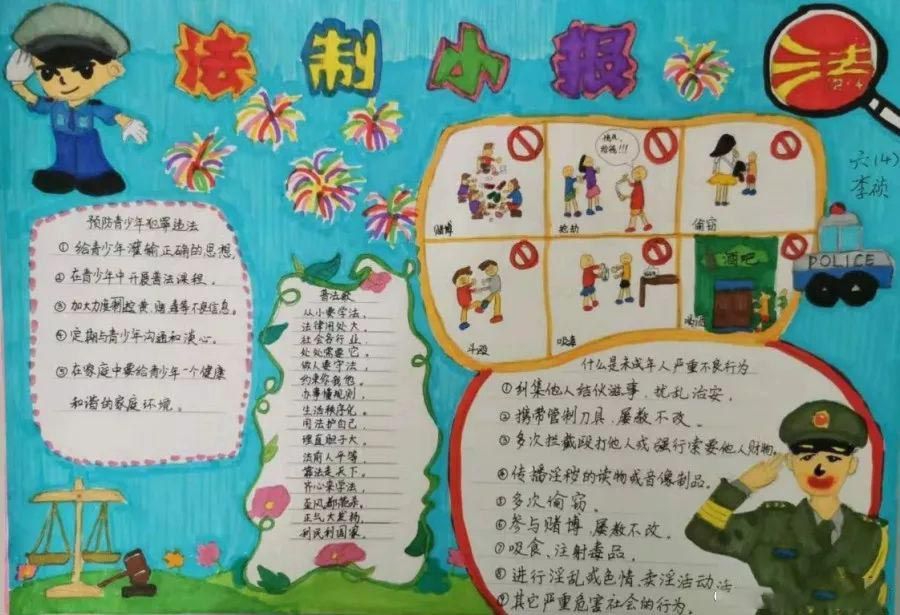 法制小报
法
12·4
六(4)
李祯
预防青少年犯罪违法
①给青少年灌输正确的思想。
②在青少年中开展普法课程。
③加大力度制控黄、赌、毒等不良信息。
④定期与青少年沟通和谈心。
⑤在家庭中要给青少年一个健康
和谐的家庭环境。
普法歌
从小要学法，
法律用处大。
社会各行业，
处处需要它。
做人要守法，
约束你我他。
办事懂规则，
生活秩序化。
用法护自己，
理直胆子大。
法前人平等
靠法走天下。
齐心来学法，
歪风都荡杀。
正气大发扬，
利民利国家。
快点，
给钱!!!
赌博
抢劫
偷窃
斗殴
吸毒
酒吧
POLICE
什么是未成年人严重不良行为
①纠集他人结伙滋事，扰乱治安。
②携带管制刀具，屡教不改。
③多次拦截殴打他人或强行索要他人财物。
④传播淫秽的读物或音像制品。
⑤多次偷窃。
⑥参与赌博，屡教不改。
⑦吸食、注射毒品。
⑧进行淫乱或色情、卖淫活动
⑨其它严重危害社会的行为。